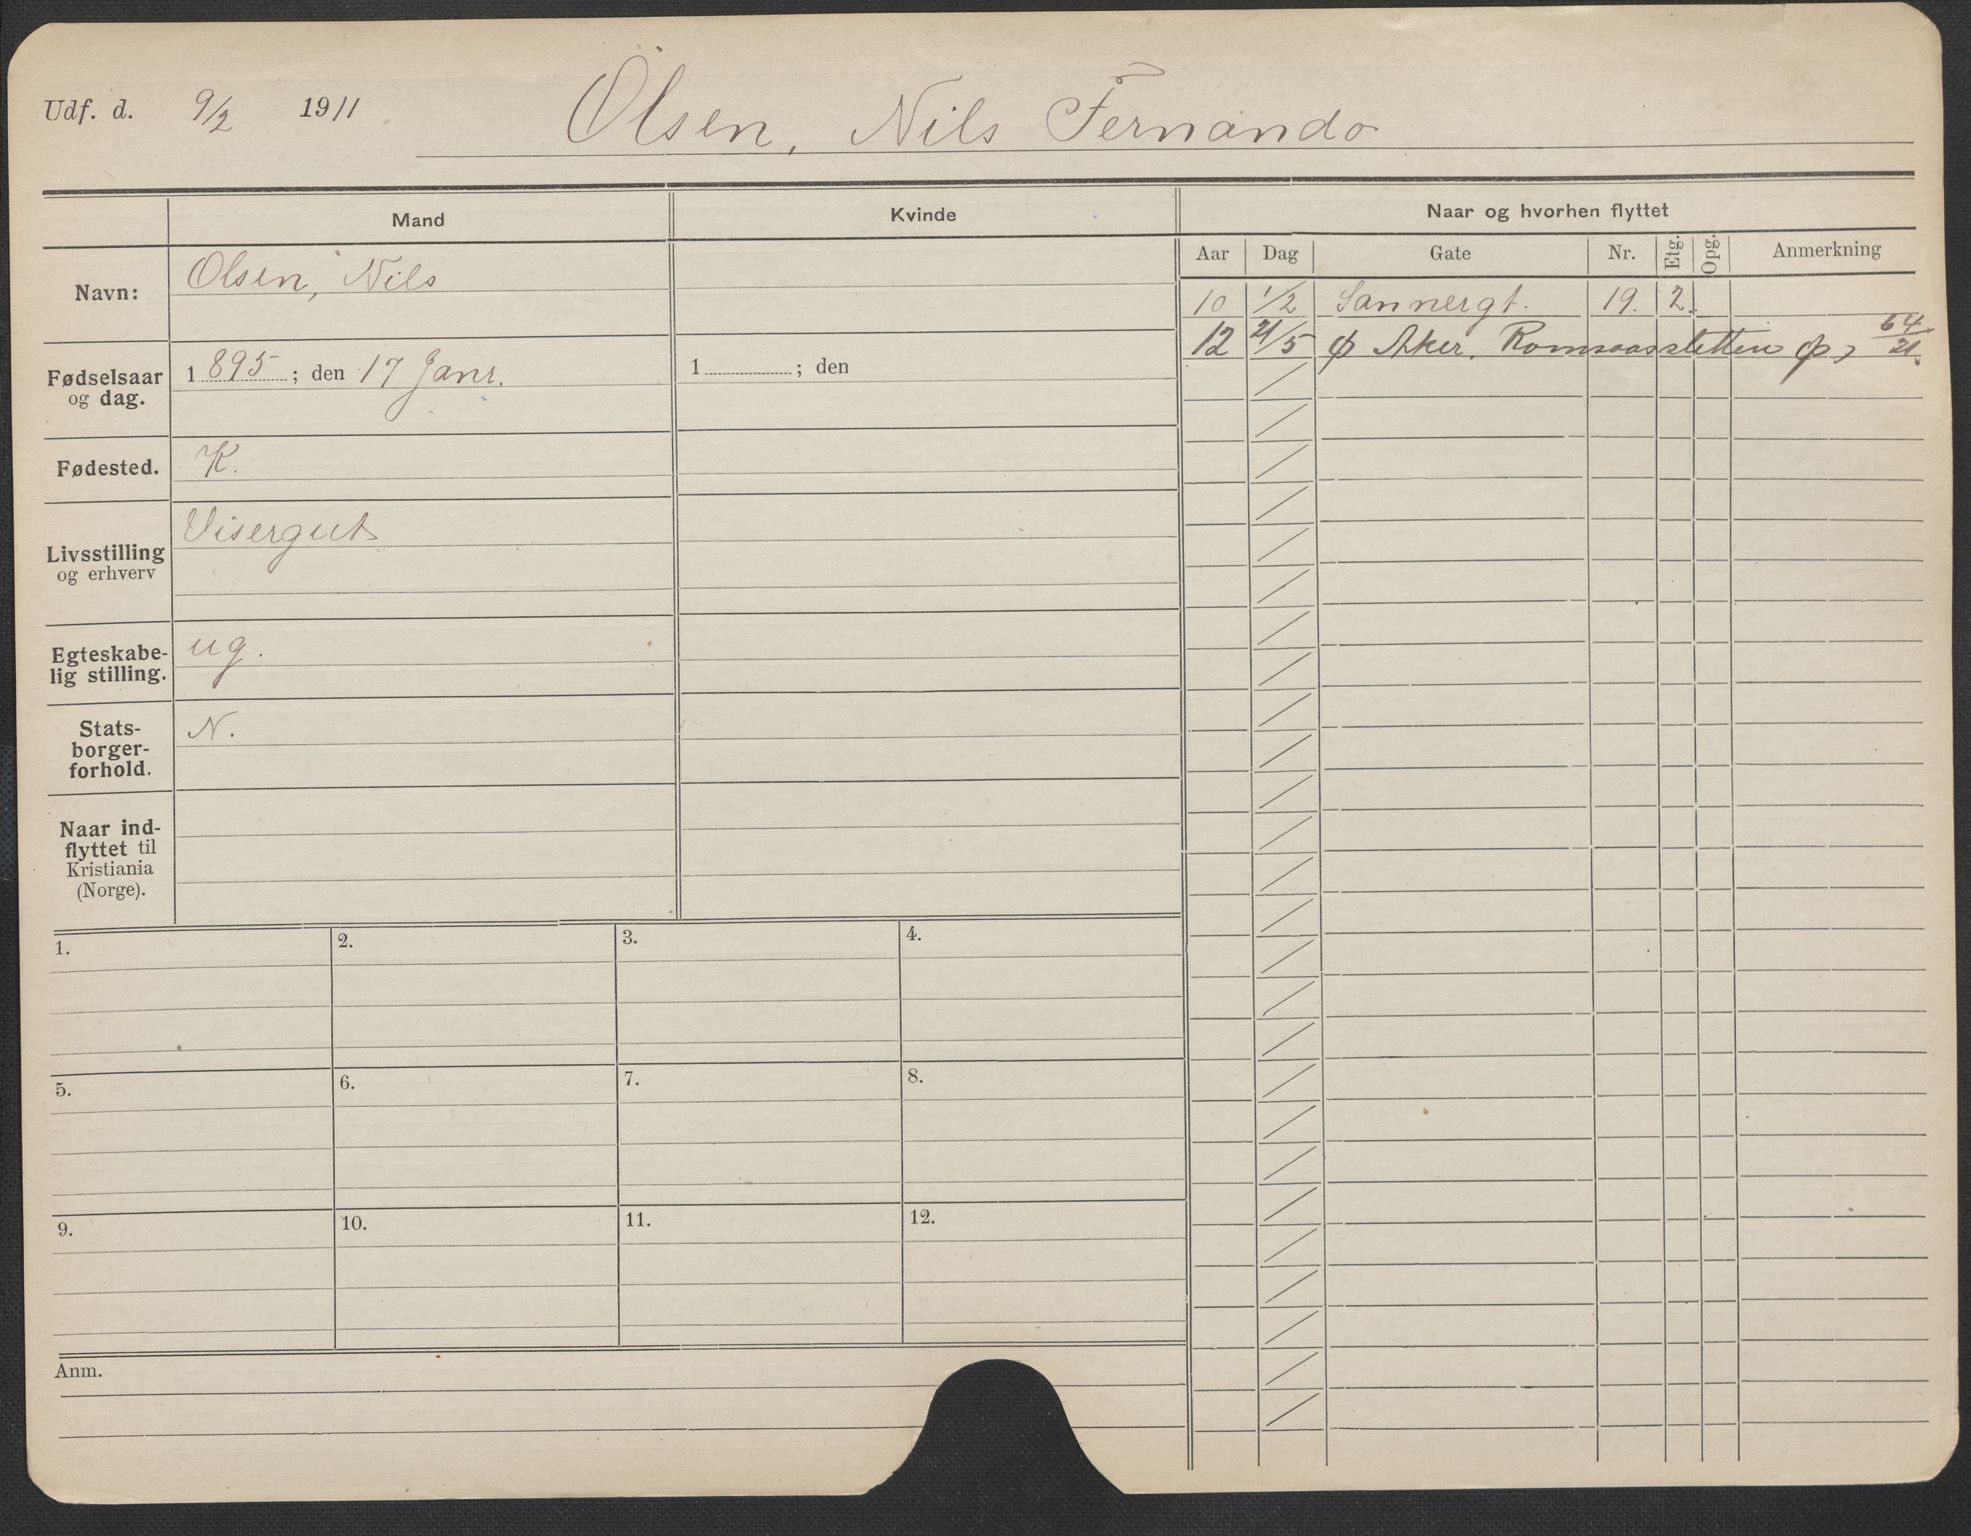 Udf. d. 9/2 1911 Olsen, Nils Fernando
Mand Kvinde Naar og hvorhen flyttet
Aar Dag Gate Nr. Etg. Opg. Anmerkning
Navn: Olsen, Nils
10 1/2 Sannergt. 19. 2.
12 21/5 φ Aker. Romsaassletten φ, 64/21.
Fødselsaar
og dag.
1895; den 17 Janr.
1 ; den
Fødested. K.
Livsstilling
og erhverv
Visergut
Egteskabe-
lig stilling.
ug.
Stats-
borger-
forhold.
N.
Naar ind-
flyttet til
Kristiania
(Norge).
1. 2. 3. 4.
5. 6. 7. 8.
9. 10. 11. 12.
Anm.